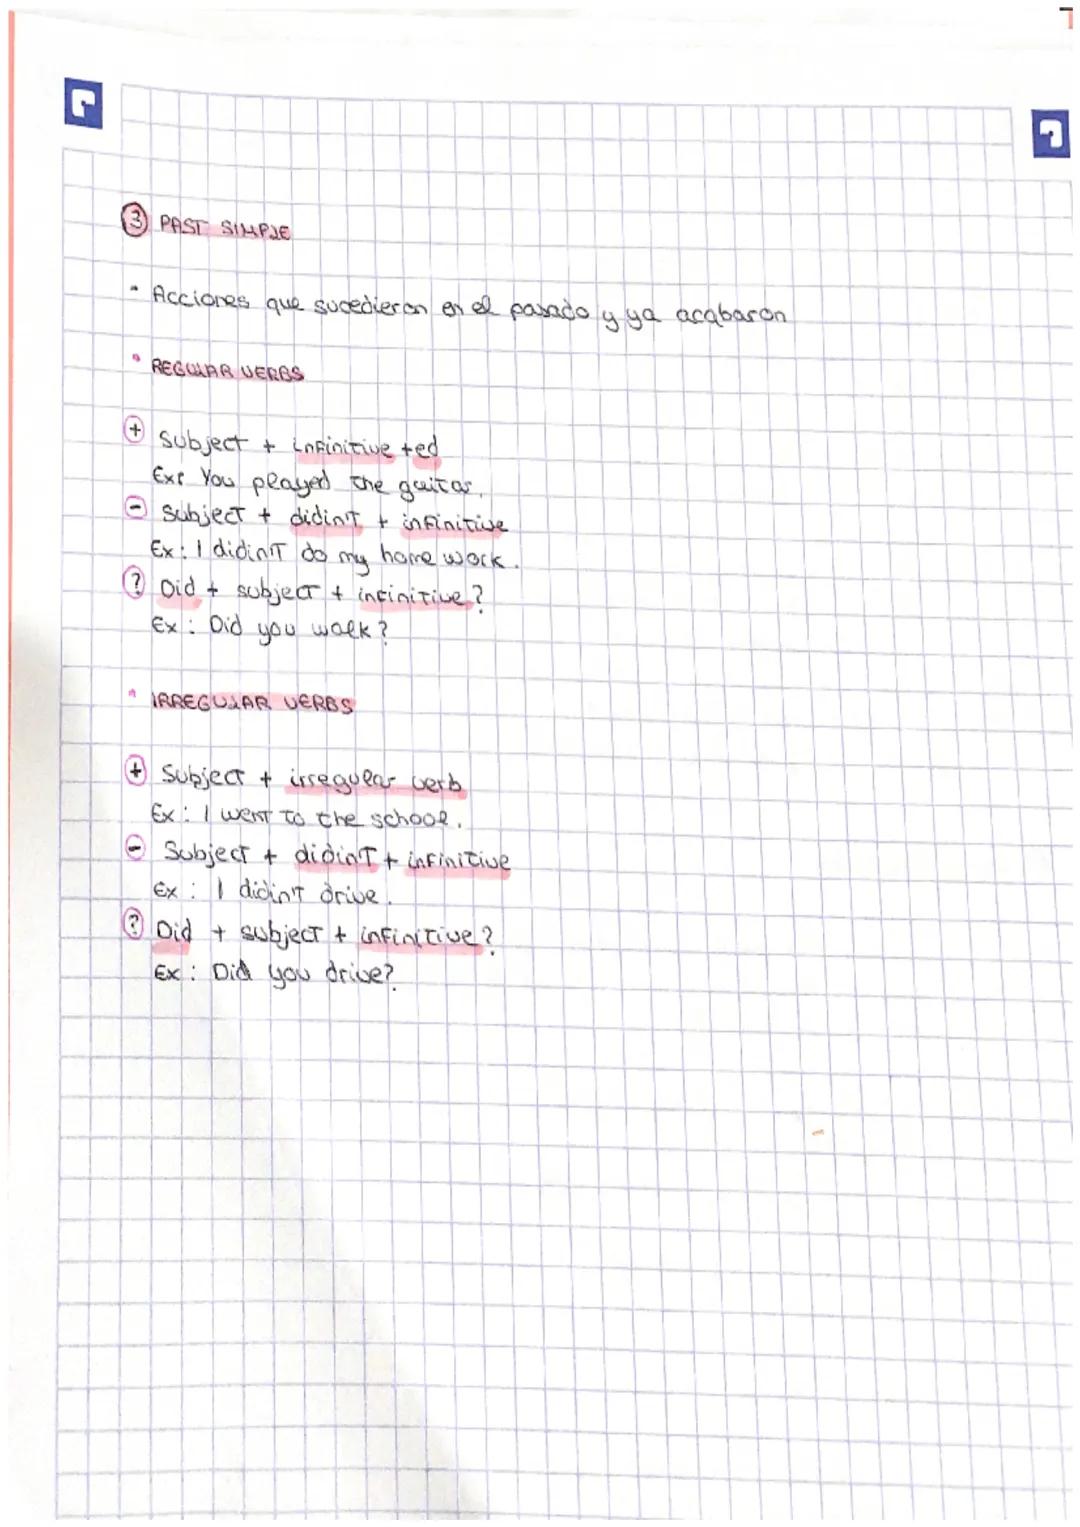 ③ PAST SIMPLE
• Acciones que sucedieron en el pasado y ya acabaron
• REGULAR VERBS
+ Subject + infinitive +ed
Ex: You played the guitar.
- Subject + didin't + infinitive
Ex: I didin't do my home work.
? Did + subject + infinitive?
Ex: Did you walk?
* IRREGULAR VERBS
+ Subject + irregular verb
Ex: I went to the school.
- Subject + didin't + infinitive
Ex: I didin't drive.
? Did + subject + infinitive?
Ex: Did you drive?